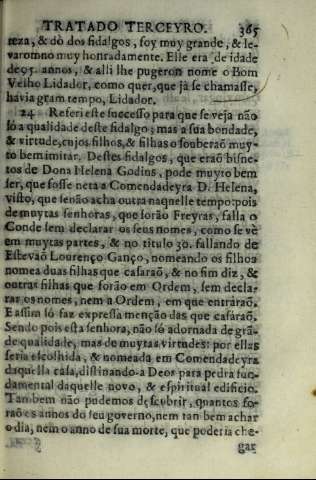 TRATADO TERCEYRO. 365
reza, & dò dos fidalgos, foy muy grande, & le-
varomno muy honradamente. Elle era de idade
de 95. annos, & alli lhe pugeron nome o Bom
Velho Lidador, como quer, que já se chamasse,
havia gram tempo, Lidador.
24 Referi este successo para que se veja não
só a qualidade deste fidalgo; mas a sua bondade,
& virtude, cujos filhos, & filhas o souberaõ muy-
to bem imitar. Destes fidalgos, que eraõ bisne-
tos de Dona Helena Godins, pode muyto bem
ser, que fosse neta a Comendadeyra D. Helena,
visto, que senão acha outra naquelle tempo: pois
de muytas senhoras, que forão Freyras, falla o
Conde sem declarar os seus nomes, como se vè
em muytas partes, & no titulo 30. fallando de
Estevaõ Lourenço Ganço, nomeando os filhos
nomea duas filhas que casaraõ, & no fim diz, &
outras filhas que forão em Ordem, sem decla-
rar os nomes, nem a Ordem, em que entràraõ.
E assim só faz expressa menção das que casárão.
Sendo pois esta senhora, não só adornada de grã-
de qualidade, mas de muytas virtudes: por ellas
seria escolhida, & nomeada em Comendadeyra
daquella casa, distinando-a Deos para pedra fun-
damental daquelle novo, & espiritual edificio.
Tambem não pudemos descubrir, quantos fo-
raõ os annos do seu governo, nem tan bem achar
o dia, nem o anno de sua morte, que poderia che-
gar